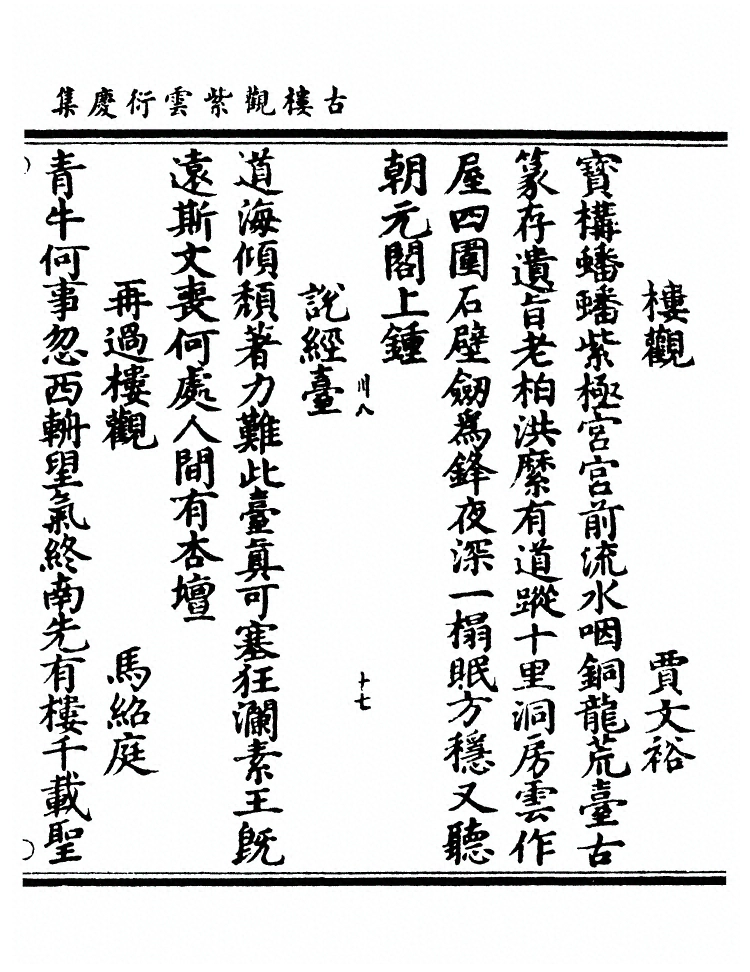 古樓觀紫雲衍慶集
樓觀　賈文裕
寶構蟠蟠紫極宮宮前流水咽銅龍荒臺古
篆存遺旨老柏洪縻有道蹤十里洞房雲作
屋四圍石壁劒爲鋒夜深一榻眠方穩又聽
朝元閣上鍾
說經臺
川八　十七
道海傾頽著力難此臺真可塞狂瀾素王旣
遠斯文喪何處人間有杏壇
再過樓觀　馬紹庭
青牛何事忽西輈朢氣終南先有樓千載聖